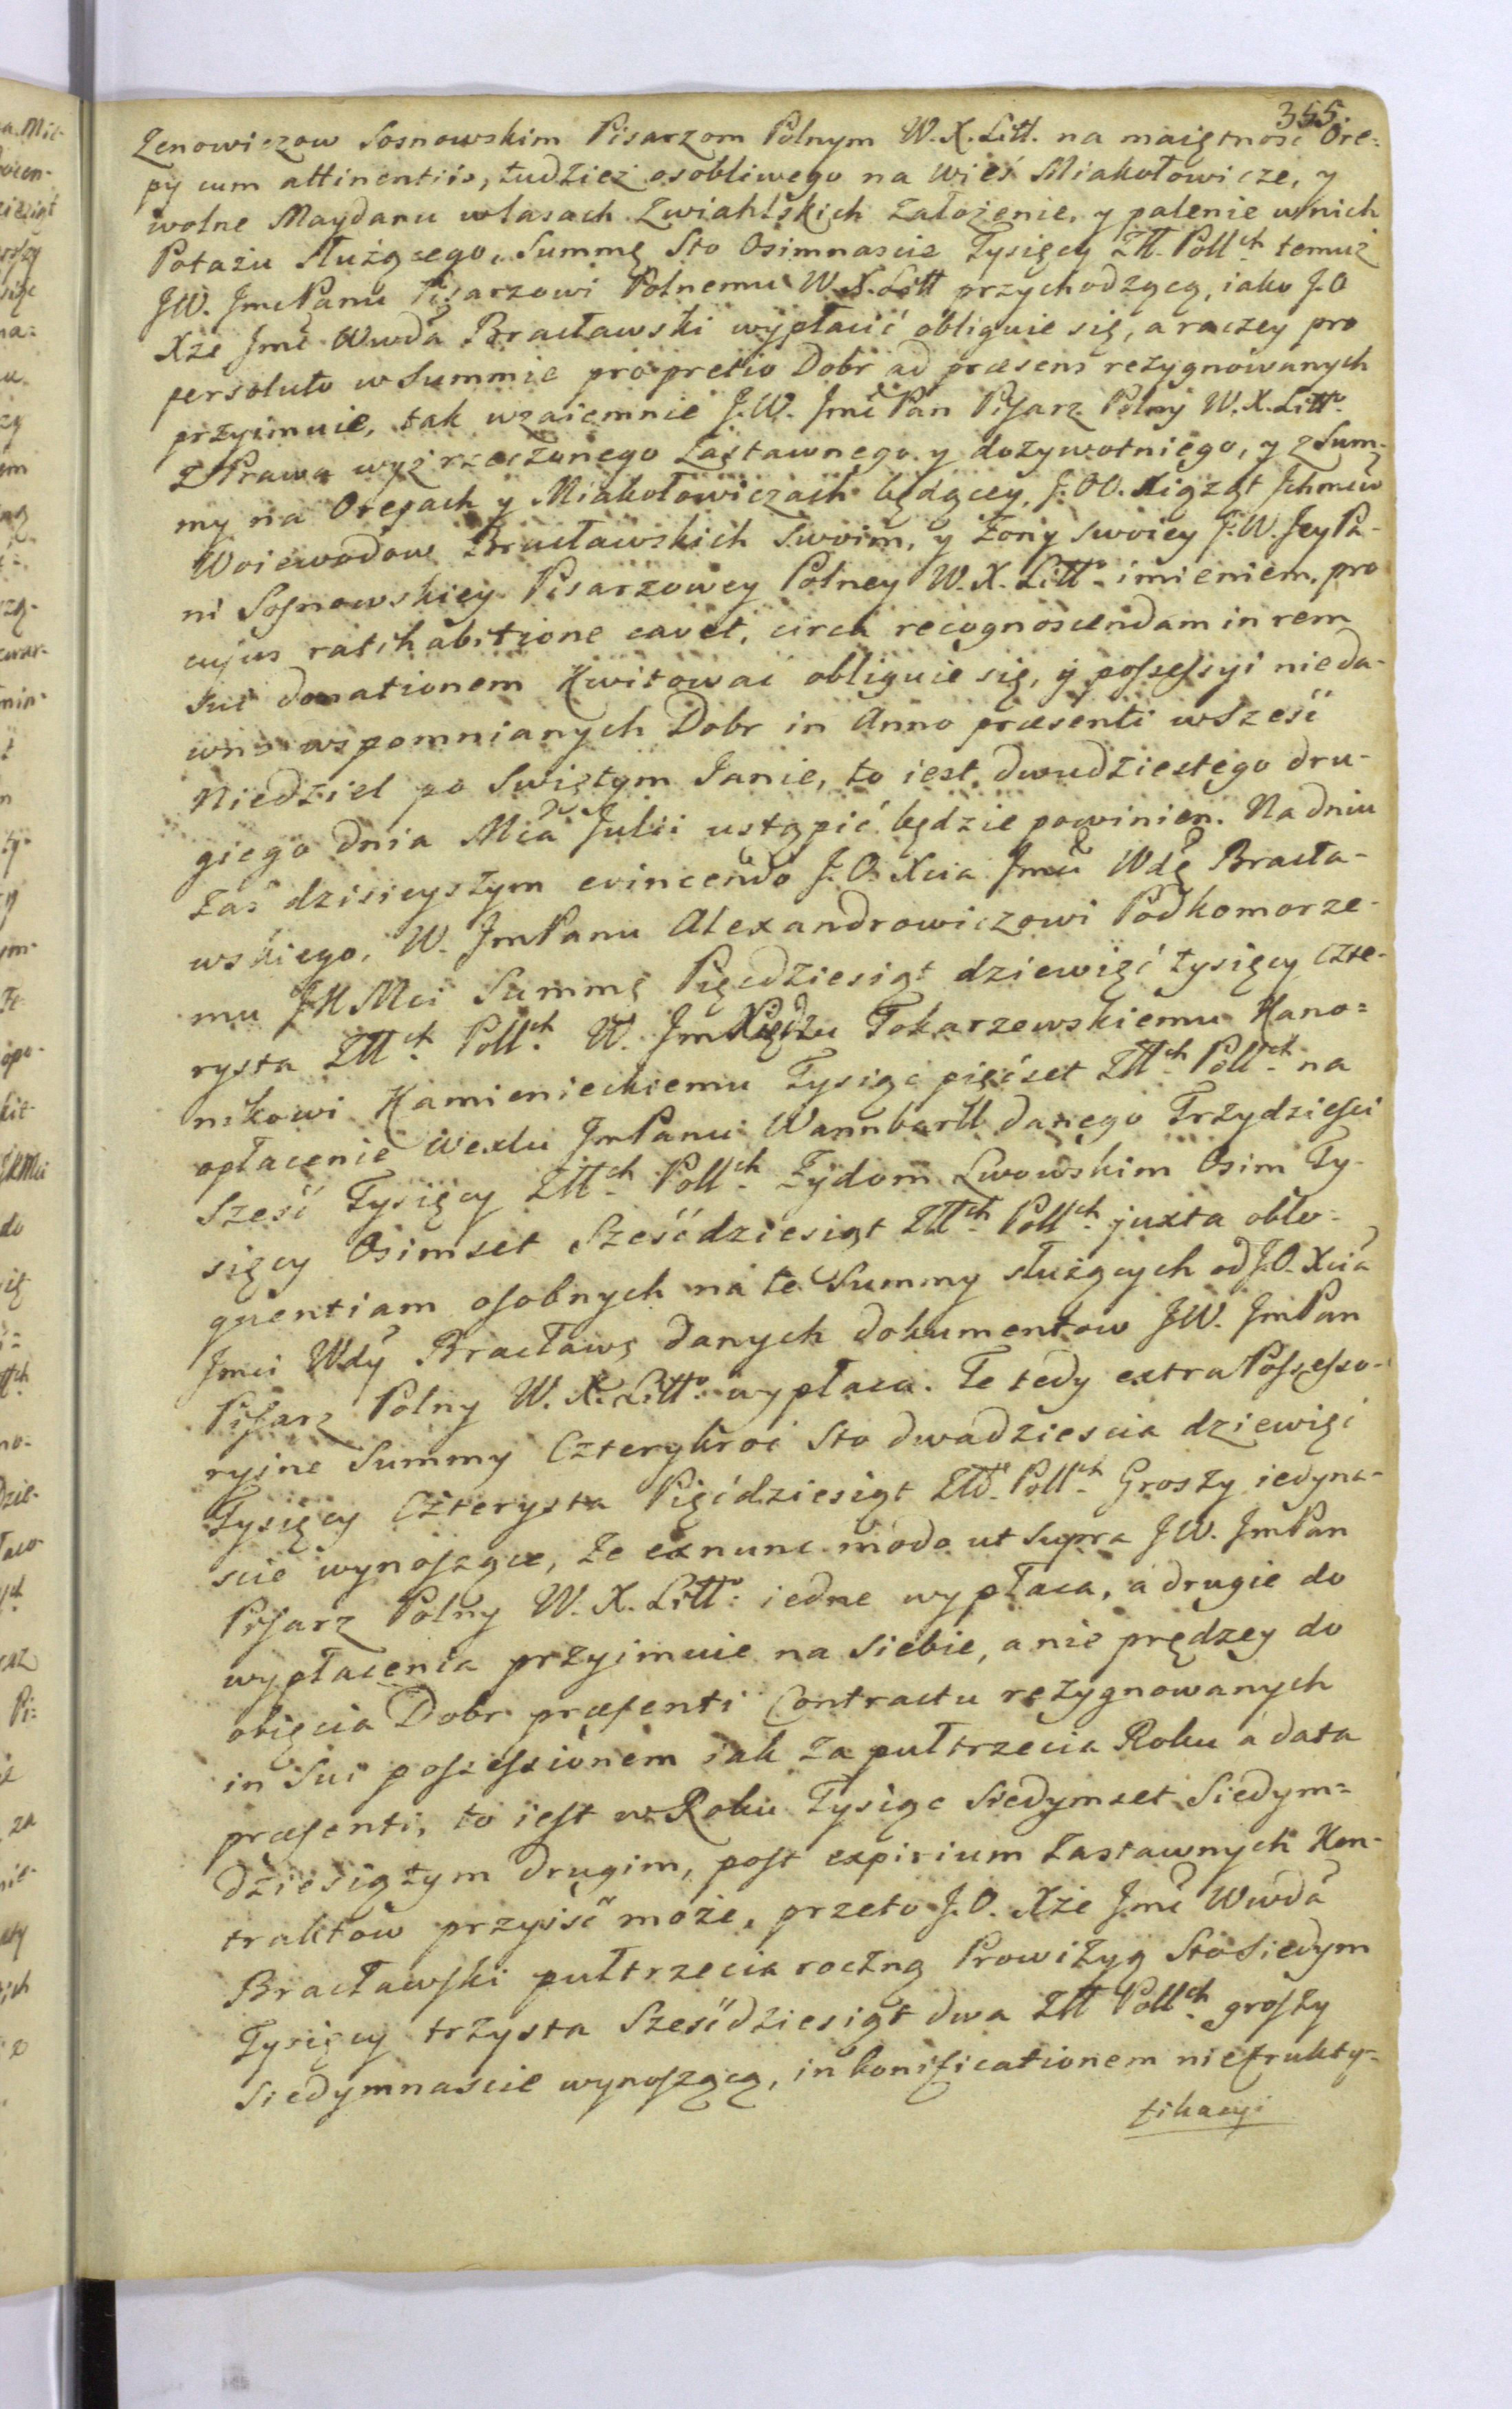 355.
Zenowiczow Sosnowskim Pisarzom Polnym W. X. Litt. na maiętnosc Ore=
py cum attinentiis, tudzież osobliwego na wieś Miakołowicze, y
wolne Maydanu wlasach Zwiahlskich Założenie, y palenie w nich
Potażu służącego, Summę Sto Osimnascie Tysięcy Złł. Pollch temuż
JW. Jmc Panu Pisarzowi Polnemu W. X. Litt przychodzącą, iako J. O
Xże Jmć Wwda Bracławski wypłacić obliguie się, a raczey pro
persoluto w Summie pro pretio Dobr ad præsens rezygnowanych
przyimuie, tak wzaiemnie J. W. Jmć Pan Pisarz Polny W. X. Litto
z Prawa wyż rzeczonego Zastawnego y dożywotniego, y z Sum-
my na Orepach y Miakołowiczach będącey, J. OO. Xiążąt Jchmciw
Woiewodow Bracławskich Swoim, y Zony Swoiey J. W. Jey Pa-
ni Sosnowskiey Pisarzowey Polney W. X. Litto. imieniem, pro
cujus ratihabitione cavet, circa recognoscendam in rem
Sui donationem Kwitowac obliguie się, y possessyi nieda-
wno wspomnianych Dobr in Anno præsenti w Sześć
Niedziel po Swiętym Janie, to iest dwudziestego dru-
giego dnia Mca Julii ustąpić będzie powinien. Na dniu
zaś dzisieyszym evincendo J. O. Xcia Jmci Wdę Bracła-
wskiego, W. Jm Panu Alexandrowiczowi Podkomorze-
mu JKMci Summę Pięcdziesiąt dziewięć tysięcy czte-
rysta Złłch Pollch W. Jm Xiędzu Tokarzewskiemu Kano=
nikowi Kamienieckiemu Tysiąc pięćset Złłch Pollch na
opłacenie Wexlu Jm Panu Wannbarll danego Trzydziesci
Sześć Tysięcy Złłch Pollch Zydom Lwowskim Osim Ty-
sięcy Osimset Sześćdziesiąt Złłch Pollch juxta oblo-
quentiam osobnych na te Summy służących od J. O. Xcia
Jmci Wdy Bracławs danych dokumentow JW. Jm Pan
Pisarz Polny W. X. Litto wypłaca. Te tedy extra Possesso-
ryine Summy Czterykroć Sto dwadziescia dziewięć
Tysięcy Czterysta Pięćdziesiąt Złł. Pollch Groszy iedyna-
scie wynoszące, że exnunc modo ut Supra JW. Jm Pan
Pisarz Polny W. X. Litto: iedne wypłaca, a drugie do
wypłacenia przyimuie na Siebie, a nie prędzey do
obięcia Dobr præsenti Contractu rezygnowanych
in Sui possessionem iak za pułtrzecia Roku a data
præsenti, to iest w Roku Tysiąc Siedymset Siedym=
dziesiątym drugim, post expirium Zastawnych Kon-
traktow przyiść może, przeto J. O. Xże Jmć Wwda
Bracławski pułtrzecia roczną Prowizyą Sto Siedym
Tysięcy trzysta Sześćdziesiąt dwa Złł Pollch groszy
Siedymnascie wynoszącą, in bonificationem niefrukty-
fikacyi